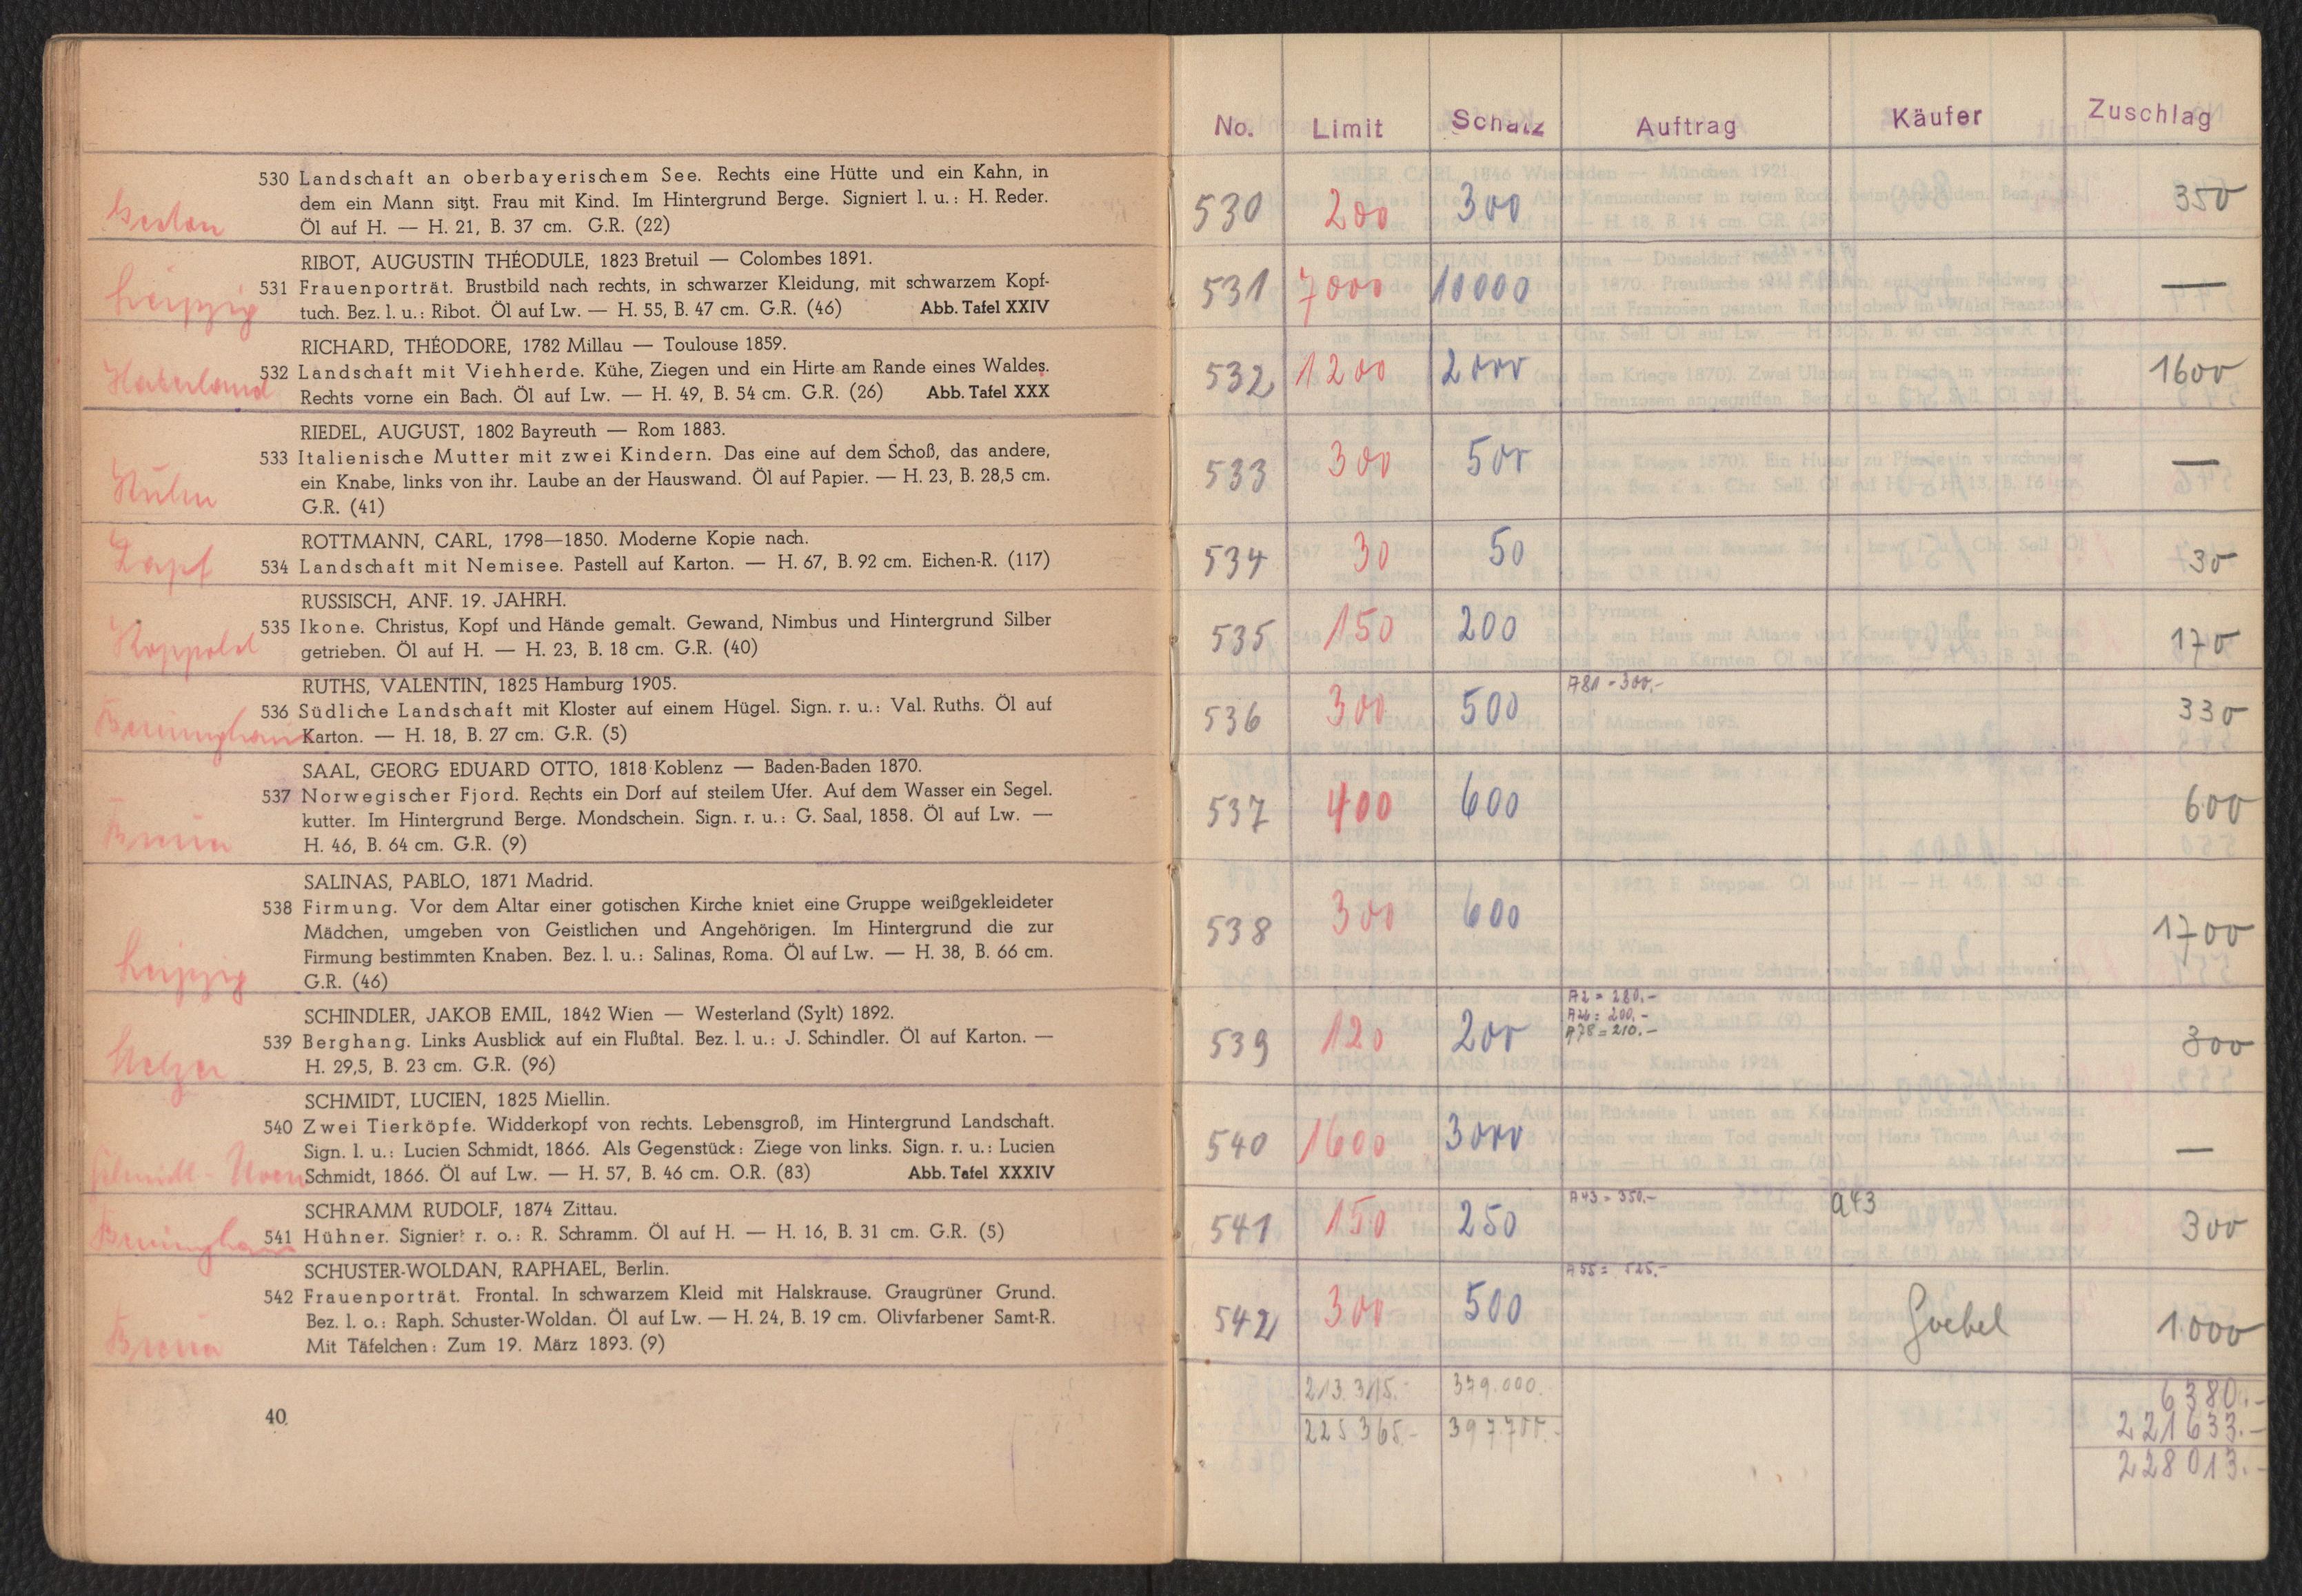 530 Landschaft an oberbayerischem See. Rechts eine Hütte und ein Kahn, in
dem ein Mann sitzt. Frau mit Kind. Im Hintergrund Berge. Signiert l. u.: H. Reder.
Öl auf H. — H. 21, B. 37 cm. G.R. (22)
Leipzig
RIBOT, AUGUSTIN THÉODULE, 1823 Bretuil — Colombes 1891.
531 Frauenporträt. Brustbild nach rechts, in schwarzer Kleidung, mit schwarzem Kopf-
tuch. Bez. l. u.: Ribot. Öl auf Lw. — H. 55, B. 47 cm. G.R. (46) Abb. Tafel XXIV
RICHARD, THÉODORE, 1782 Millau — Toulouse 1859.
532 Landschaft mit Viehherde. Kühe, Ziegen und ein Hirte am Rande eines Waldes.
Rechts vorne ein Bach. Öl auf Lw. — H. 49, B. 54 cm. G.R. (26) Abb. Tafel XXX
RIEDEL, AUGUST, 1802 Bayreuth — Rom 1883.
533 Italienische Mutter mit zwei Kindern. Das eine auf dem Schoß, das andere,
ein Knabe, links von ihr. Laube an der Hauswand. Öl auf Papier. — H. 23, B. 28,5 cm.
G.R. (41)
ROTTMANN, CARL, 1798—1850. Moderne Kopie nach.
534 Landschaft mit Nemisee. Pastell auf Karton. — H. 67, B. 92 cm. Eichen-R. (117)
RUSSISCH, ANF. 19. JAHRH.
535 Ikone. Christus, Kopf und Hände gemalt. Gewand, Nimbus und Hintergrund Silber
Koppold
getrieben. Öl auf H. — H. 23, B. 18 cm. G.R. (40)
RUTHS, VALENTIN, 1825 Hamburg 1905.
536 Südliche Landschaft mit Kloster auf einem Hügel. Sign. r. u.: Val. Ruths. Öl auf
Karton. — H. 18, B. 27 cm. G.R. (5)
SAAL, GEORG EDUARD OTTO, 1818 Koblenz — Baden-Baden 1870.
537 Norwegischer Fjord. Rechts ein Dorf auf steilem Ufer. Auf dem Wasser ein Segel.
kutter. Im Hintergrund Berge. Mondschein. Sign. r. u.: G. Saal, 1858. Öl auf Lw. —
H. 46, B. 64 cm. G.R. (9)
SALINAS, PABLO, 1871 Madrid.
538 Firmung. Vor dem Altar einer gotischen Kirche kniet eine Gruppe weißgekleideter
Mädchen, umgeben von Geistlichen und Angehörigen. Im Hintergrund die zur
Firmung bestimmten Knaben. Bez. l. u.: Salinas, Roma. Öl auf Lw. — H. 38, B. 66 cm.
Leipzig
G.R. (46)
SCHINDLER, JAKOB EMIL, 1842 Wien — Westerland (Sylt) 1892.
539 Berghang. Links Ausblick auf ein Flußtal. Bez. l. u.: J. Schindler. Öl auf Karton. —
H. 29,5, B. 23 cm. G.R. (96)
SCHMIDT, LUCIEN, 1825 Miellin.
540 Zwei Tierköpfe. Widderkopf von rechts. Lebensgroß, im Hintergrund Landschaft.
Sign. l. u.: Lucien Schmidt, 1866. Als Gegenstück: Ziege von links. Sign. r. u.: Lucien
Schmidt, 1866. Öl auf Lw. — H. 57, B. 46 cm. O.R. (83) Abb. Tafel XXXIV
SCHRAMM RUDOLF, 1874 Zittau.
541 Hühner. Signiert r. o.: R. Schramm. Öl auf H. — H. 16, B. 31 cm. G.R. (5)
SCHUSTER-WOLDAN, RAPHAEL, Berlin.
542 Frauenporträt. Frontal. In schwarzem Kleid mit Halskrause. Graugrüner Grund.
Bez. l. o.: Raph. Schuster-Woldan. Öl auf Lw. — H. 24, B. 19 cm. Olivfarbener Samt-R.
Mit Täfelchen: Zum 19. März 1893. (9)
40
No. Limit Schatz Auftrag Käufer Zuschlag
530 200 300 350
531 7000 10000 —
532 1200 2000 1600
533 300 500 —
534 30 50 30
535 150 200 170
A81 = 300.-
536 300 500 330
537 400 600 600
538 300 600 1700
A2 = 280.-
A26 = 200.-
A78 = 210.-
539 120 200 300
540 1600 3000 —
A43 = 350.- a43
541 150 250 300
A55 = 525.-
542 300 500 Goebel 1000
213.315.- 379.000.- 6380.-
225365.- 397700.- 221633.-
228013.-